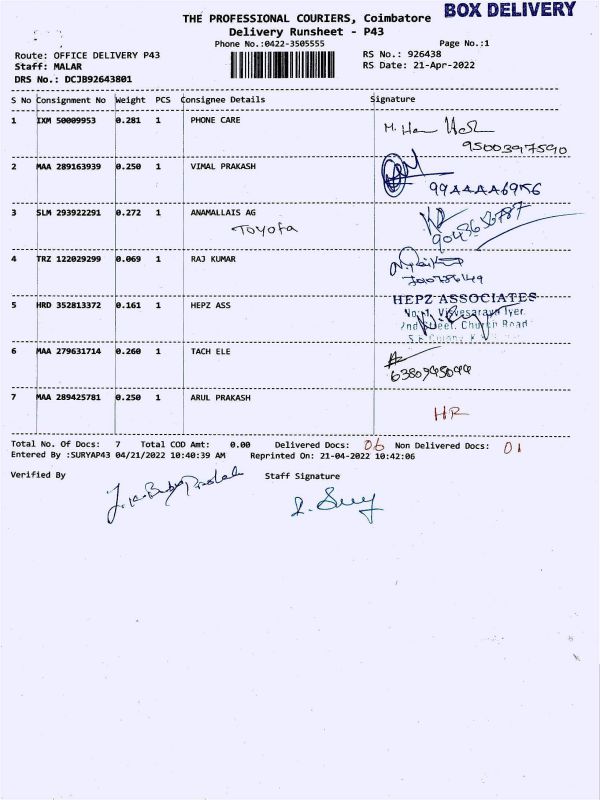 BOX DELIVERY
THE PROFESSIONAL COURIERS, Coimbatore
Delivery Runsheet - P43
Phone No.:0422-3505555 Page No.:1
Route: OFFICE DELIVERY P43 RS No.: 926438
Staff: MALAR RS Date: 21-Apr-2022
DRS No.: DCJB92643801
S No Consignment No Weight PCS Consignee Details Signature
1 IXM 50009953 0.281 1 PHONE CARE
9500397590
2 MAA 289163939 0.250 1 VIMAL PRAKASH
3 SLM 293922291 0.272 1 ANAMALLAIS AG
TOYOTA
9043656787
4 TRZ 122029299 0.069 1 RAJ KUMAR
5 HRD 352813372 0.161 1 HEPZ ASS
HEPZ ASSOCIATES
2nd Street, Church Road
6 MAA 279631714 0.260 1 TACH ELE
7 MAA 289425781 0.250 1 ARUL PRAKASH
HR
Total No. Of Docs: 7 Total COD Amt: 0.00 Delivered Docs: 06 Non Delivered Docs: 01
Entered By :SURYAP43 04/21/2022 10:40:39 AM Reprinted On: 21-04-2022 10:42:06
Verified By Staff Signature